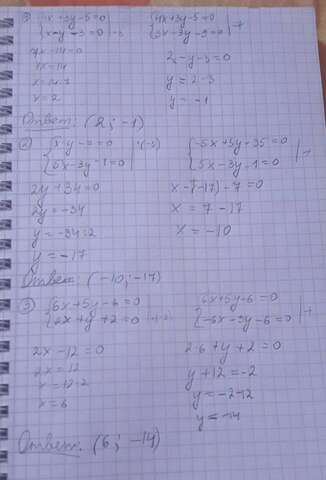 {4x+3y-5=0
{x-y-3=0 |·3
{4x+3y-5=0
{3x-3y-9=0 |+
7x-14=0
7x=14
x=14:7
x=2
2-y-3=0
y=2-3
y=-1
Ответ: (2; -1)
② {x-y-7=0 |·(-5)
{5x-3y-1=0
{-5x+5y+35=0
{5x-3y-1=0 |+
2y+34=0
2y=-34
y=-34:2
y=-17
x-(-17)-7=0
x=7-17
x=-10
Ответ: (-10; -17)
③ {6x+5y-6=0
{2x+y+2=0 |·(-3)
{6x+5y-6=0
{-6x-3y-6=0 |+
2x-12=0
2x=12
x=12:2
x=6
2·6+y+2=0
y+12=-2
y=-2-12
y=-14
Ответ: (6; -14)